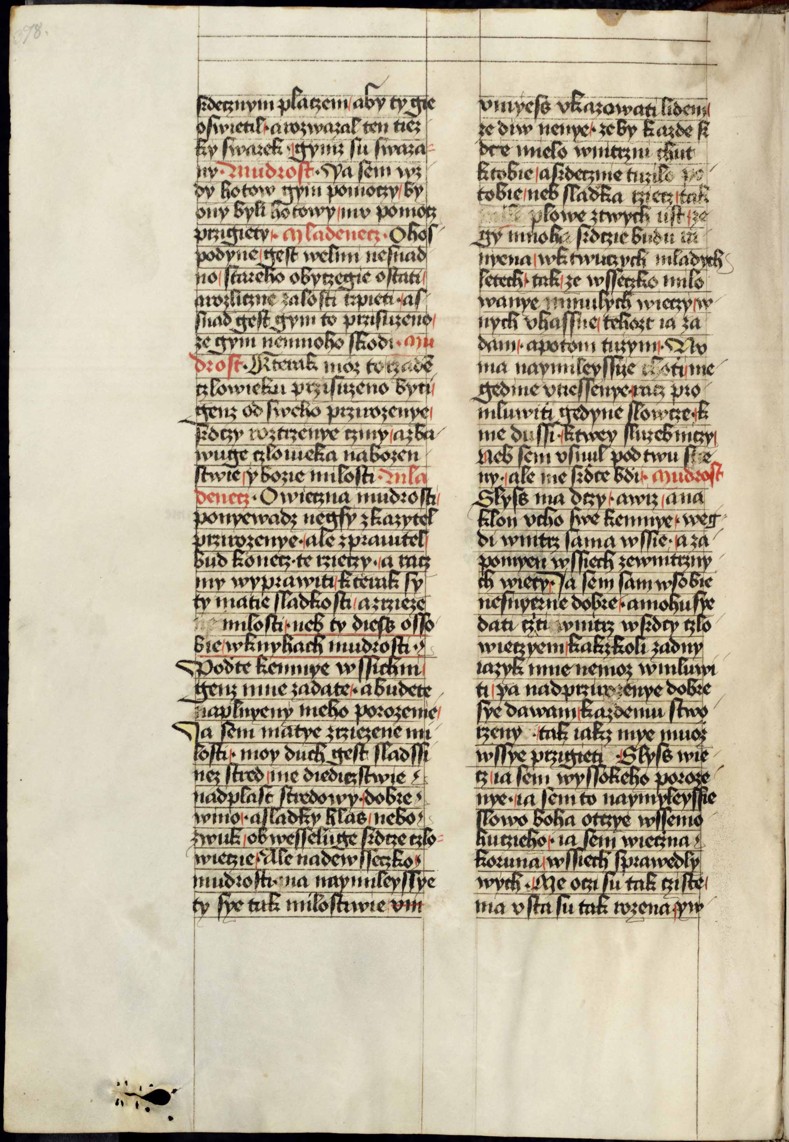 srdecznym placzem aby ty gie
oswietil a rozwazal ten tiez
ky swazek gymz su swaza
ny Mudrost Ya sem wz
dy hotow gym pomoczy by
ony byli hotowy mu pomocz
przigiety Mladenecz O hos
podyne gest welmi nesnad
no stareho obyczegie ostati
a rozliczne zalosti trpieti as
snad gest gym to przisuzeno
ze gym nemnoho skodi Mu
drost Kterak moz to rzadē
czlowieku przisuzeno byti
genz od sweho przirozenye
srdczy roztrzenye tzmy a zba
wuge czlowieka nabozen
stwie y bozie milosti Mla
denecz O wieczna mudrosti
ponyewadz negsy zkazytel
przirozenye ale zprawitel
bud konecz te rzieczy a racz
my wyprawiti kterak sy
ty matie sladkosti a rzieze
milosti neb ty diess o sso
bie w knyhach mudrosti
Podte ke mnye wssichni
genz mne zadate a budete
naplnyeny meho porozenie
Ja sem matye zrziezene mi
losti moy duch gest sladssi
nez stred me diediczstwie
nadplast stredowy dobre
wino a sladky hlas nebo
zwuk obwesseluge srdcze czlo
wieczie Ale nadewsseczko
mudrosti ma naymileyssye
ty sye tak milostiwie vm
vmyess vkazowati lidem
ze diw nenye ze by kazde sr
dce mielo wnitrzni chut
k tobie a srdeczme tuzilo po
tobie neb sladka rziecz tak
plowe z twych ust ze
gy mnoha srdczie budu ra
nyena w ktwuczych mladych
letech tak ze wsseczko milo
wanye minulych wieczy w
nych vhassne tehozt ia za
dam a potom tuzym No
ma naymileyssye choti me
gedine vtiessenye racz pro
mluwiti gedyne slowcze k
me dussi k twey sluzebniczy
Neb sem vsnul pod twu stie
ny ale me srdce bdi Mudrost
Slyss ma dczy a wiz a na
klon vcho swe ke mnye weg
di wnitrz sama w sie a za
pomyen wssiech zewnitrzny
ch wieczy Ja sem sam w sobie
nesmyerne dobre a mohu sye
dati czti wnitrz w srdczy czlo
wieczyem kakzkoli zadny
iazyk mne nemoz wmluwi
ti ya nadprzirozenye dobre
sye dawam kazdemu stwo
rzeny tak iakz mye muoz
wssye przigieti Slyss wie
cz ia sem wyssokeho poroze
nye ia sem to naymyleyssie
slowo boha otczye wssemo
huczieho ia sem wieczna
koruna wssiech sprawedly
wych Me oczi su tak cziste
ma vsta su tak rozena yw